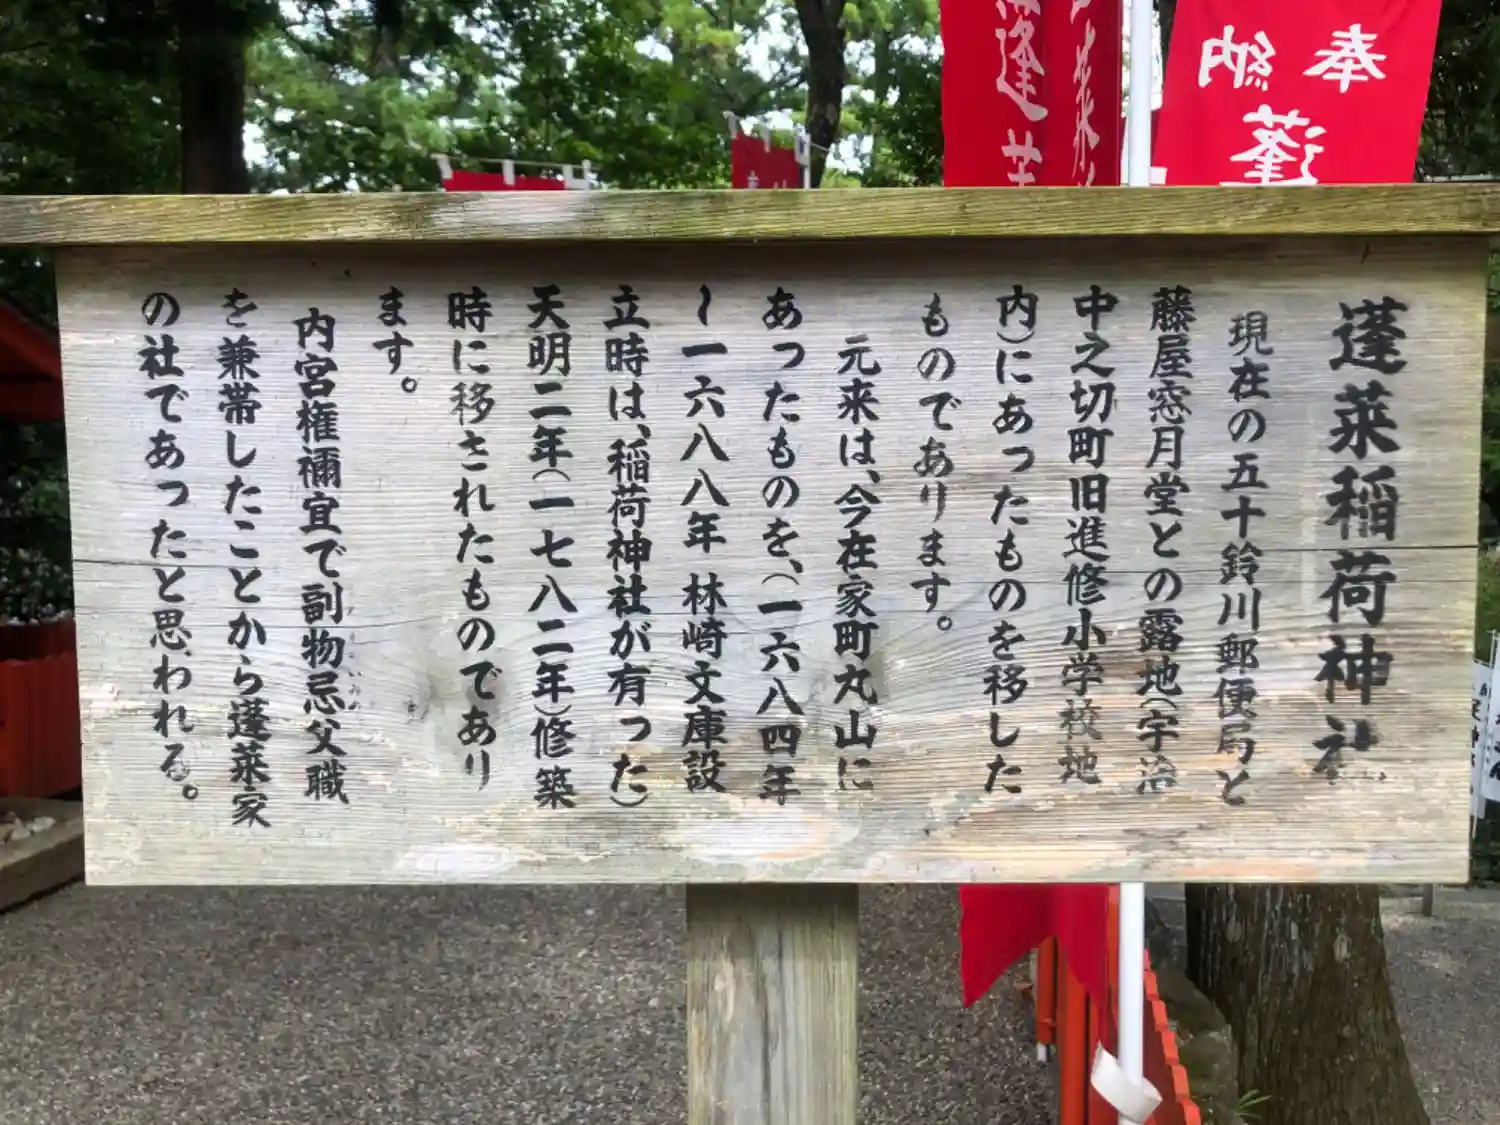 蓬莱稲荷神社
現在の五十鈴川郵便局と
藤屋窓月堂との露地(宇治
中之切町旧進修小学校地
内)にあったものを移した
ものであります。
元来は、今在家町丸山に
あったものを、(一六八四年
~一六八八年 林崎文庫設
立時は、稲荷神社が有った)
天明二年(一七八二年)修築
時に移されたものであり
ます。
内宮権禰宜で副物忌父職
を兼帯したことから蓬莱家
の社であったと思われる。
奉納
蓬
蓬莱
莱